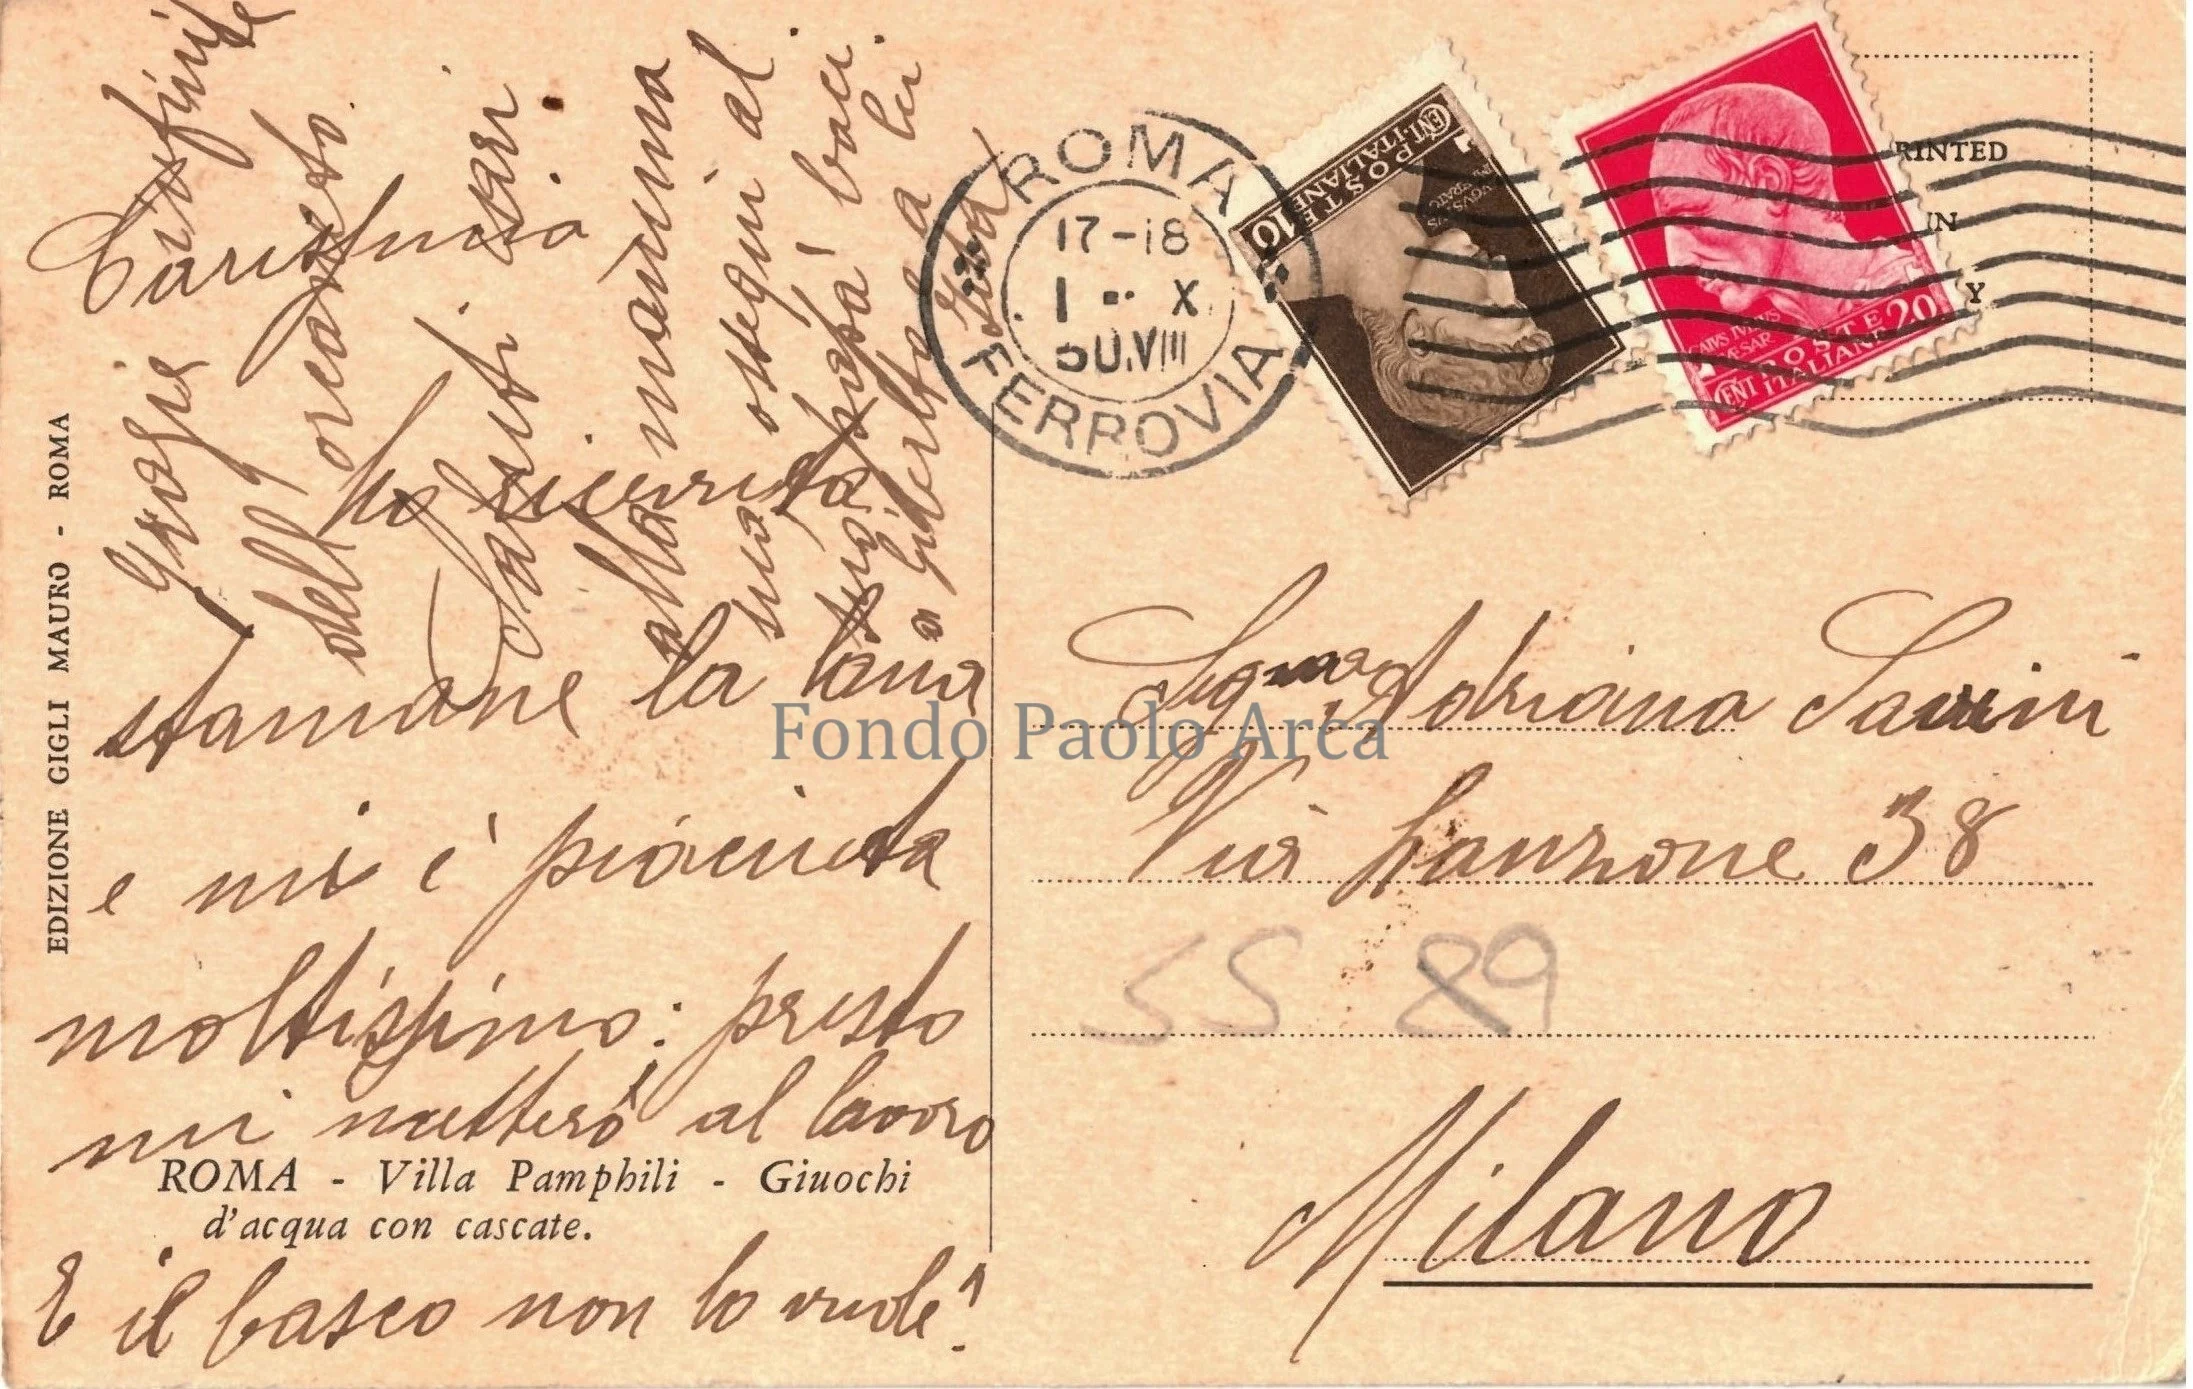 Carissima
ho ricevuta
stamane la lana
e mi è piaciuta
moltissimo: presto
mi metterò al lavoro
E il basco non lo vuole?
Grazie infinite
dell'oreanto.
Saluti cari
alla mamma
sua, ossequi al
suo papà baci
a Giberto a lei
ROMA - Villa Pamphili - Giuochi
d'acqua con cascate.
EDIZIONE GIGLI MAURO - ROMA
ROMA
17-18
1 - X
30.VIII
FERROVIA
10
CENT.
POSTE
ITALIANE
CAIVS IVLIVS
CAESAR
20
CENT
POSTE
ITALIANE
RINTED
IN
Y
Fondo Paolo Arca
Adriana Savini
Via Lanzone 38
SS 89
Milano